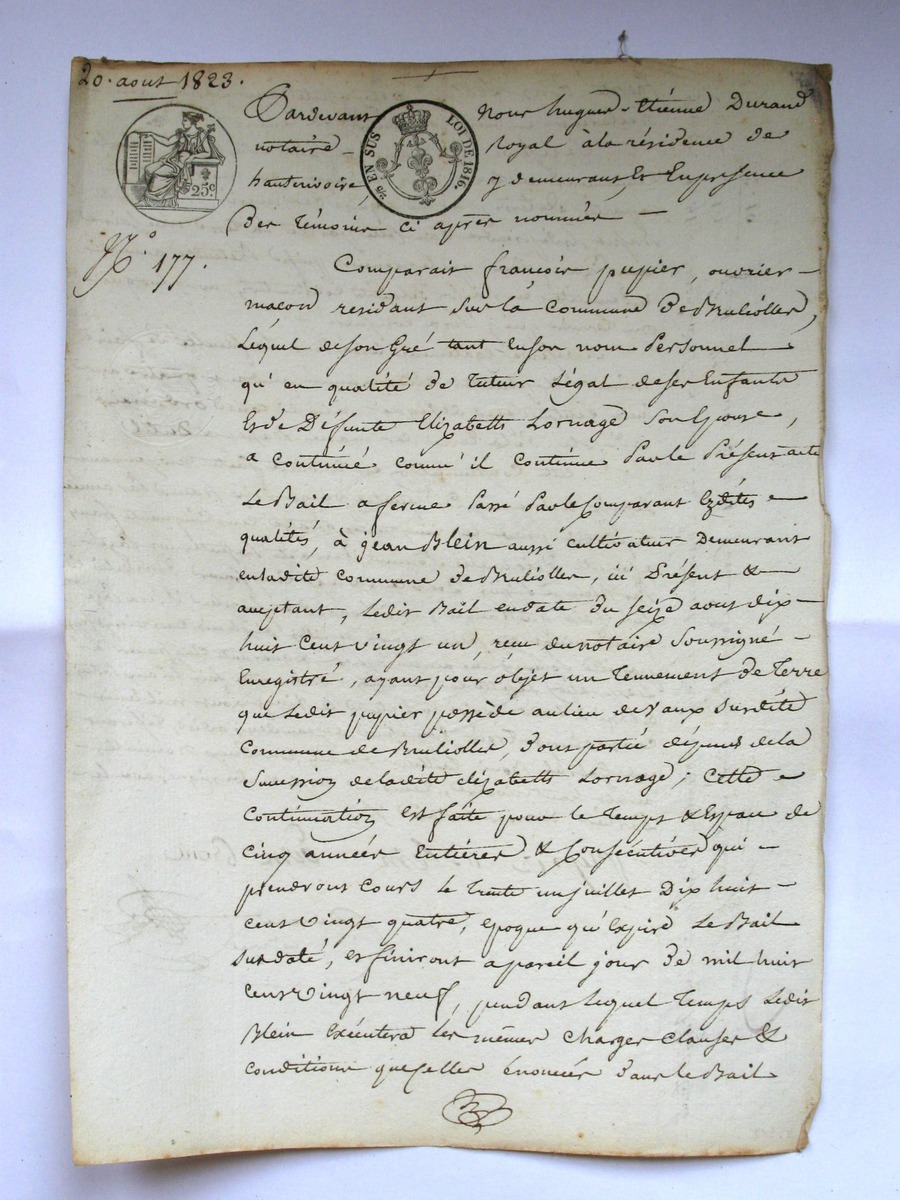 20. aout 1823.
Pardevant Nous hugue-Etienne Durand
notaire royal à la résidence de
hauterivoire, y demeurant, Et En presence
Des témoins Ci après nommés —
25c.
2/5 EN SUS LOI DE 1816.
N.o 177.
Comparait françois pupier, ouvrier-
maçon residant sur la commune de Brullioller,
Léquel de son Gré tant En son nom Personnel
qu'en qualité de tuteur Légal de ses Enfants
Et de Défunte Elizabeth Lornage son Epouse,
a continué comme il continue Par le Présent acte
Le Bail a ferme Passé Par le Comparant Ezdites
qualités, à jean Blein aussi cultivateur Demeurant
en ladite commune de Brullioller, ici Présent &
acceptant, Ledit Bail en date du seize aout dix-
huit Cent vingt un, reçu du notaire soussigné
Enregistré, ayant pour objet un Tennement de Terre
que Ledit pupier possède au lieu de Vaux sur dite
Commune de Brullioller, dont partie dépend de la
Succession de ladite élizabeth Lornage; Cette
Continuation est faite pour le Temps & Espace de
Cinq années Entières & Consécutives qui
prendront Cours le trente un juillet Dix huit-
cent vingt quatre, epoque qu'Expire Le Bail
susdaté, et finiront a pareil jour de mil huit
Cent vingt neuf, pendant lequel Temps Ledit
Blein Exécutera les mêmes charges Clauses &
conditions que Celles énoncées dans le Bail